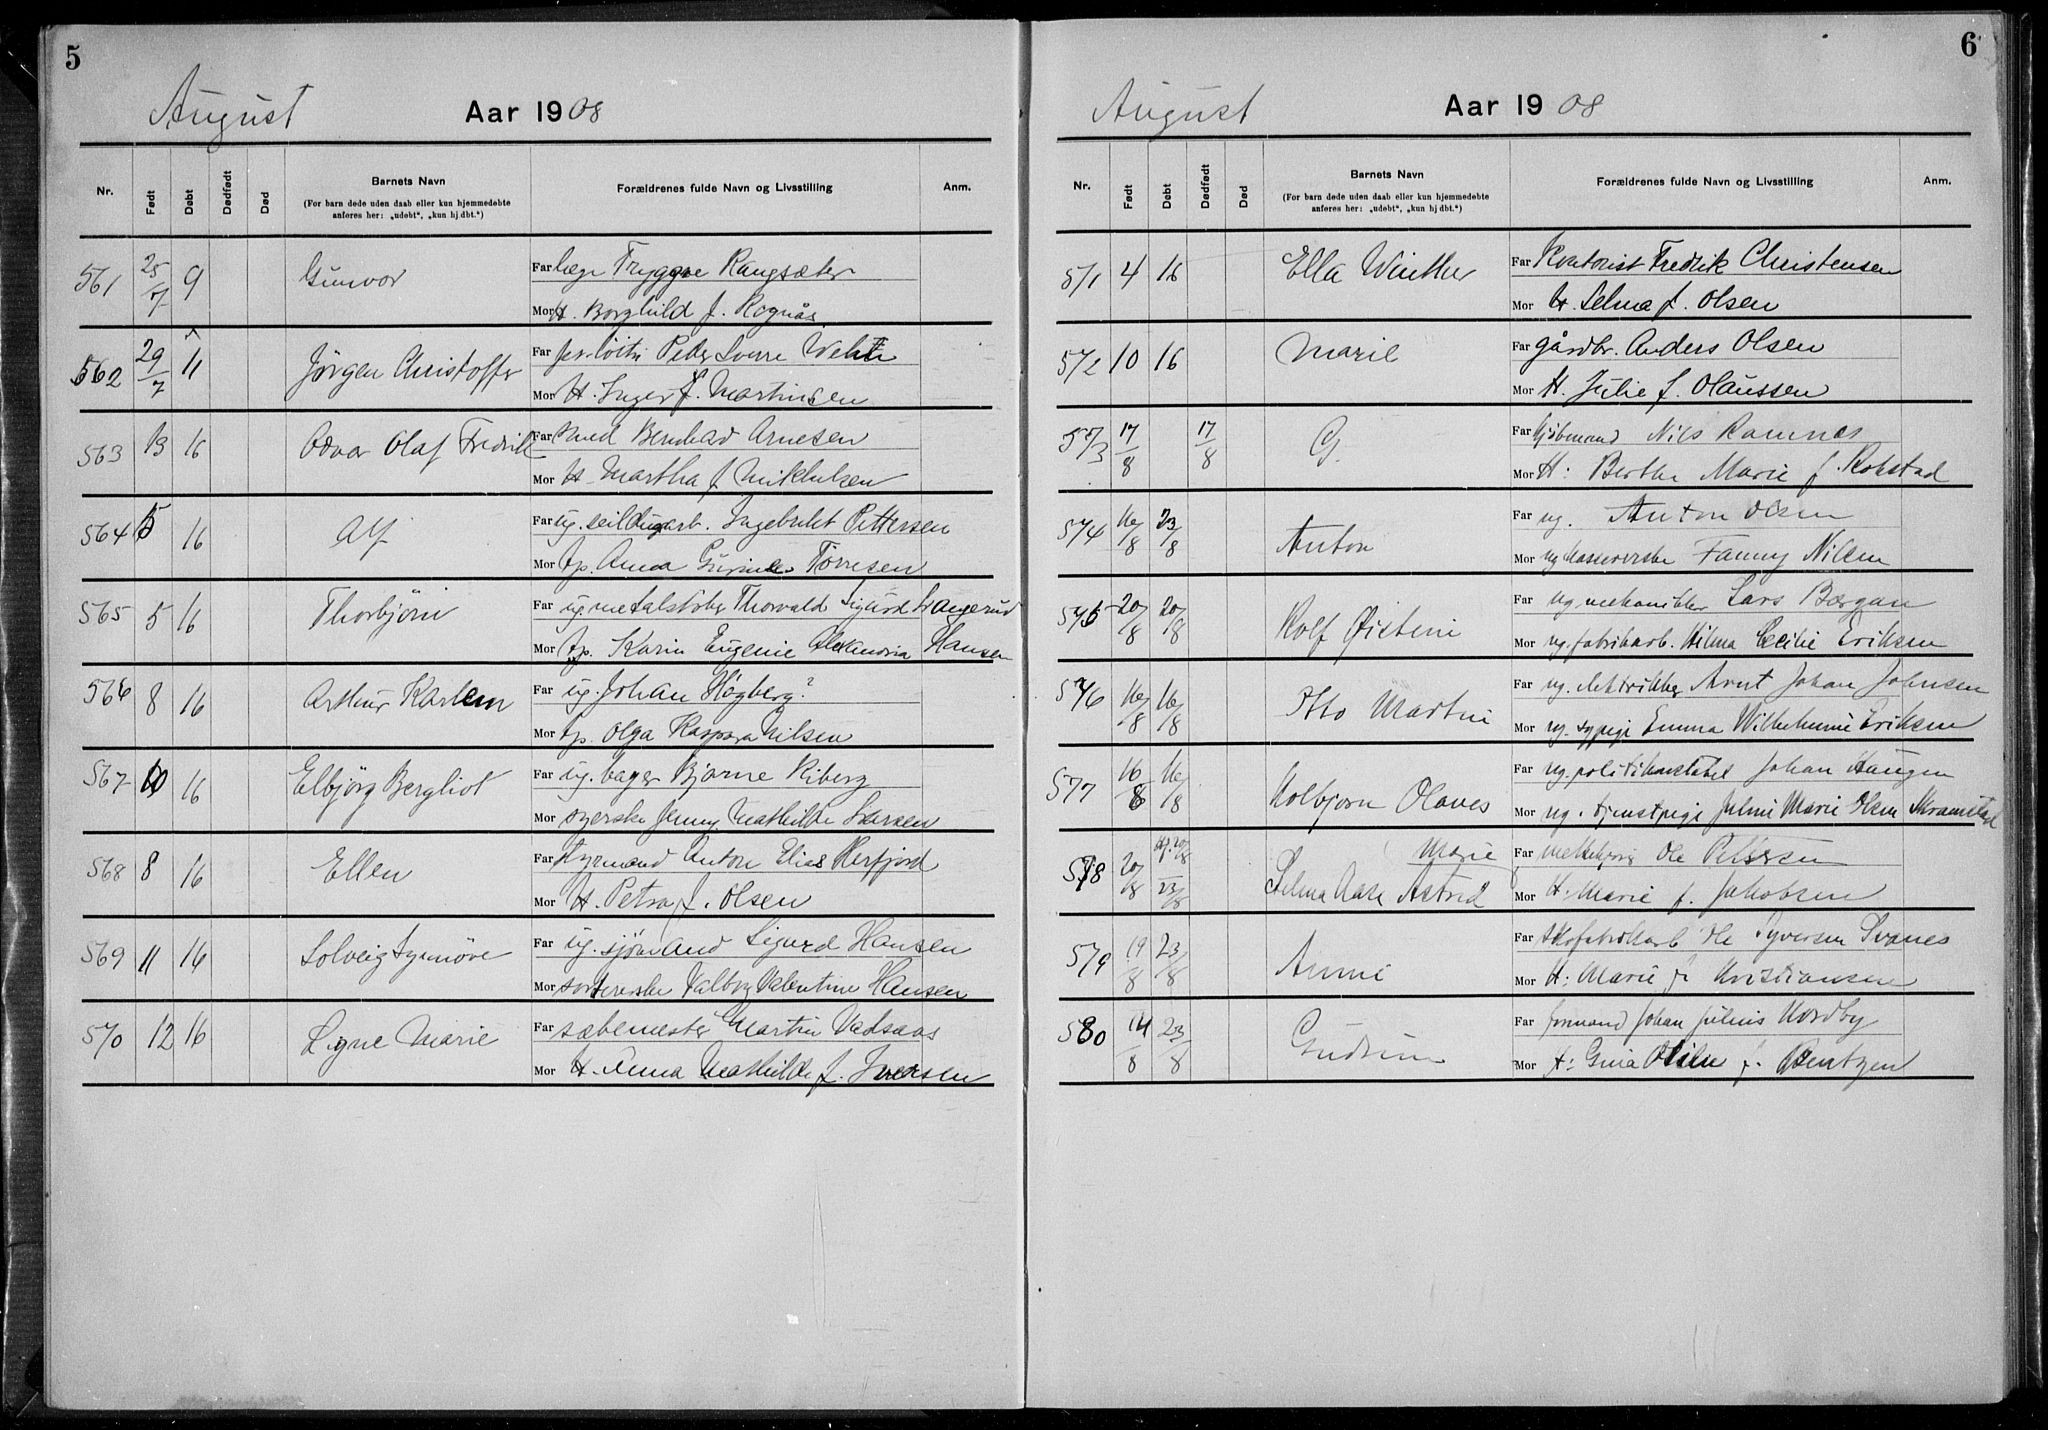 5
August Aar 1908
Nr. Født Døbt Dødfødt Død Barnets Navn Forældrenes fulde Navn og Livsstilling Anm.
(For barn døde uden daab eller kun hjemmedøbte
anføres her: „udøbt“, „kun hj.dbt.“)
561 25/7 9 Gunvor Far læge Tryggve Rangsæter
Mor H. Borghild f. Rognås
562 29/7 11 Jörgen Christoffer Far Peder Sverre
Mor H. Inger f. Martinsen
563 13 16 Odvar Olaf Fredrik Far smed Bernhard Arnesen
Mor H. Martha f. Mikkelsen
564 5 16 Alf Far ug. Ingebrikt Pettersen
Mor tp. Anna Gurine Törresen
565 5 16 Thorbjörn Far ug. metalstöber Thorvald Sigurd Svangerud
Mor tp. Karin Eugenie Alexandria Hansen
566 8 16 Arthur Karlem Far ug. Johan Högberg?
Mor tp. Olga Kaspara Nilsen
567 10 16 Elbjörg Bergliot Far ug. bager Bjarne Riberg
Mor syerske Jenny Mathilde Larsen
568 8 16 Ellen Far styrmand Anton Elias Herfjord
Mor H. Petra f. Olsen
569 11 16 Solveig Synnöve Far ug. sjömand Sigurd Hansen
Mor sorterske Valborg Valentine Hansen
570 12 16 Signe Marie Far sæbemester Martin Vadsaas
Mor H. Anna Mathilde f. Iversen
6
August Aar 1908
Nr. Født Døbt Dødfødt Død Barnets Navn Forældrenes fulde Navn og Livsstilling Anm.
(For barn døde uden daab eller kun hjemmedøbte
anføres her: „udøbt“, „kun hj.dbt.“)
571 4 16 Ella Winther Far Kontorist Fredrik Christensen
Mor H. Selma f. Olsen
572 10 16 Marie Far gårdbr. Anders Olsen
Mor H. Julie f. Olaussen
573 17/8 17/8 G. Far kjöbmand Nils Ramnes
Mor H: Berthe Marie f. Rokstad
574 16/8 23/8 Anton Far ug. Anton Olsen
Mor ug kassererske Fanny Nilsen
575 20/8 20/8 Rolf Øistein Far ug mekaniker Lars Bærgan
Mor ug. fabrikarb. Hilma Cecilie Eriksen
576 16/8 16/8 Otto Martin Far ug. elektriker Arnt Johan Johnsen
Mor ug. sypige Emma Wilhelmine Eriksen
577 16/6 16/8 Kolbjorn Olaves Far ug. politikonstabel Johan Haugen
Mor ug. tjenestpige Julie Marie Olsen Skramstad
578 20/8 Hj. 20/8 23/8 Selma Aase Astrid Marie Far Ole Petersen
Mor H: Marie f. Jakobsen
579 19/8 23/8 Anni Far Skofabrikarb Ole Syversen Svanes
Mor H: Marie f. Kristiansen
580 14/8 23/8 Gudrun Far formand Johan Julius Nordby
Mor H: Gina Otilie f. Bentzen